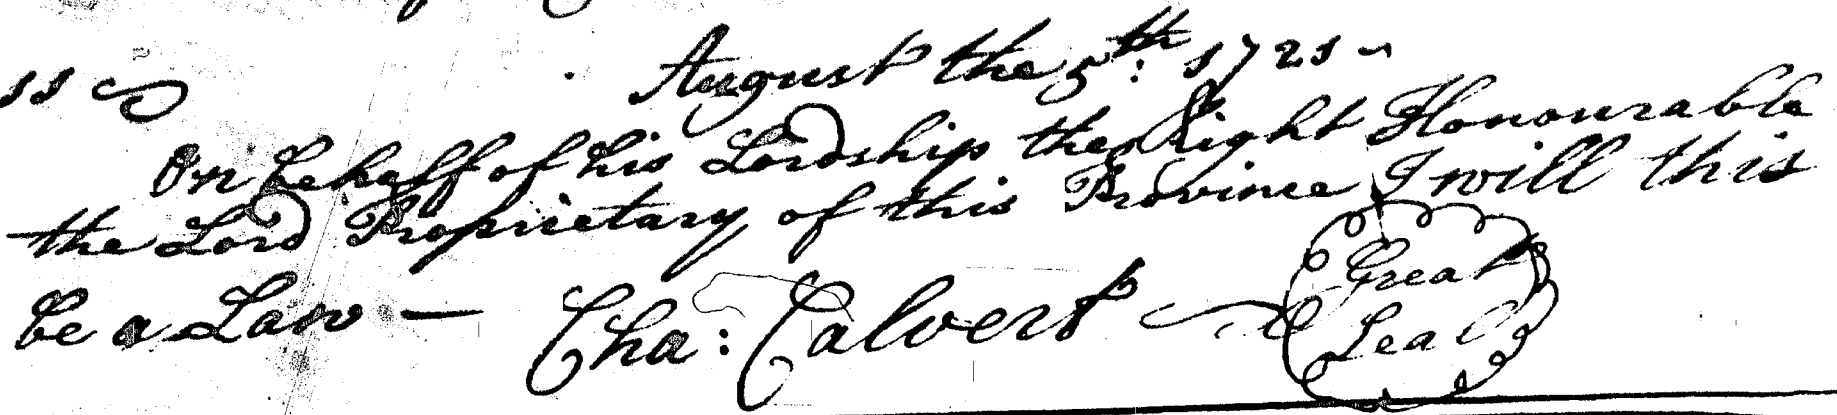 August the 5th: 1721
ss
On behalf of his Lordship the Right Honourable
the Lord Proprietary of this Province I will this
be a Law — Cha: Calvert
Great
Seal